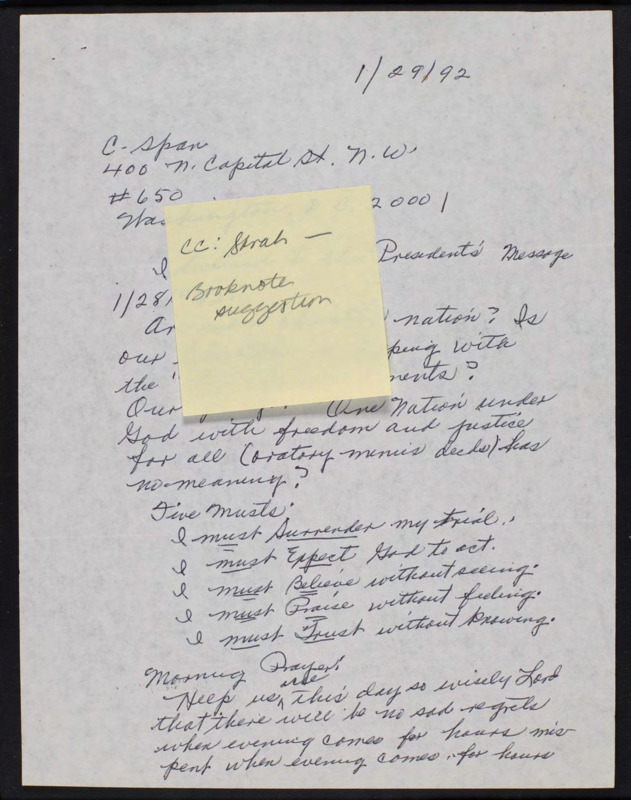 1/29/92
C-Span
400 N. Capital St. N.W.
#650
Was 20001
CC: Sarah —
Booknotes
suggestion
I Presidents' Message
1/28/
Ar nation? Is
our ping with
the " ments?
Our One Nation under
God with freedom and justice
for all (oratory minus deeds) has
no meaning?
Five Musts:
I must Surrender my trial.
I must Expect God to act.
I must Believe without seeing.
I must Praise without feeling.
I must Trust without knowing.
Morning Prayer:
Help us use this day so wisely Lord
that there will be no sad regrets
when evening comes for hours mis-
pent when evening comes. for hours